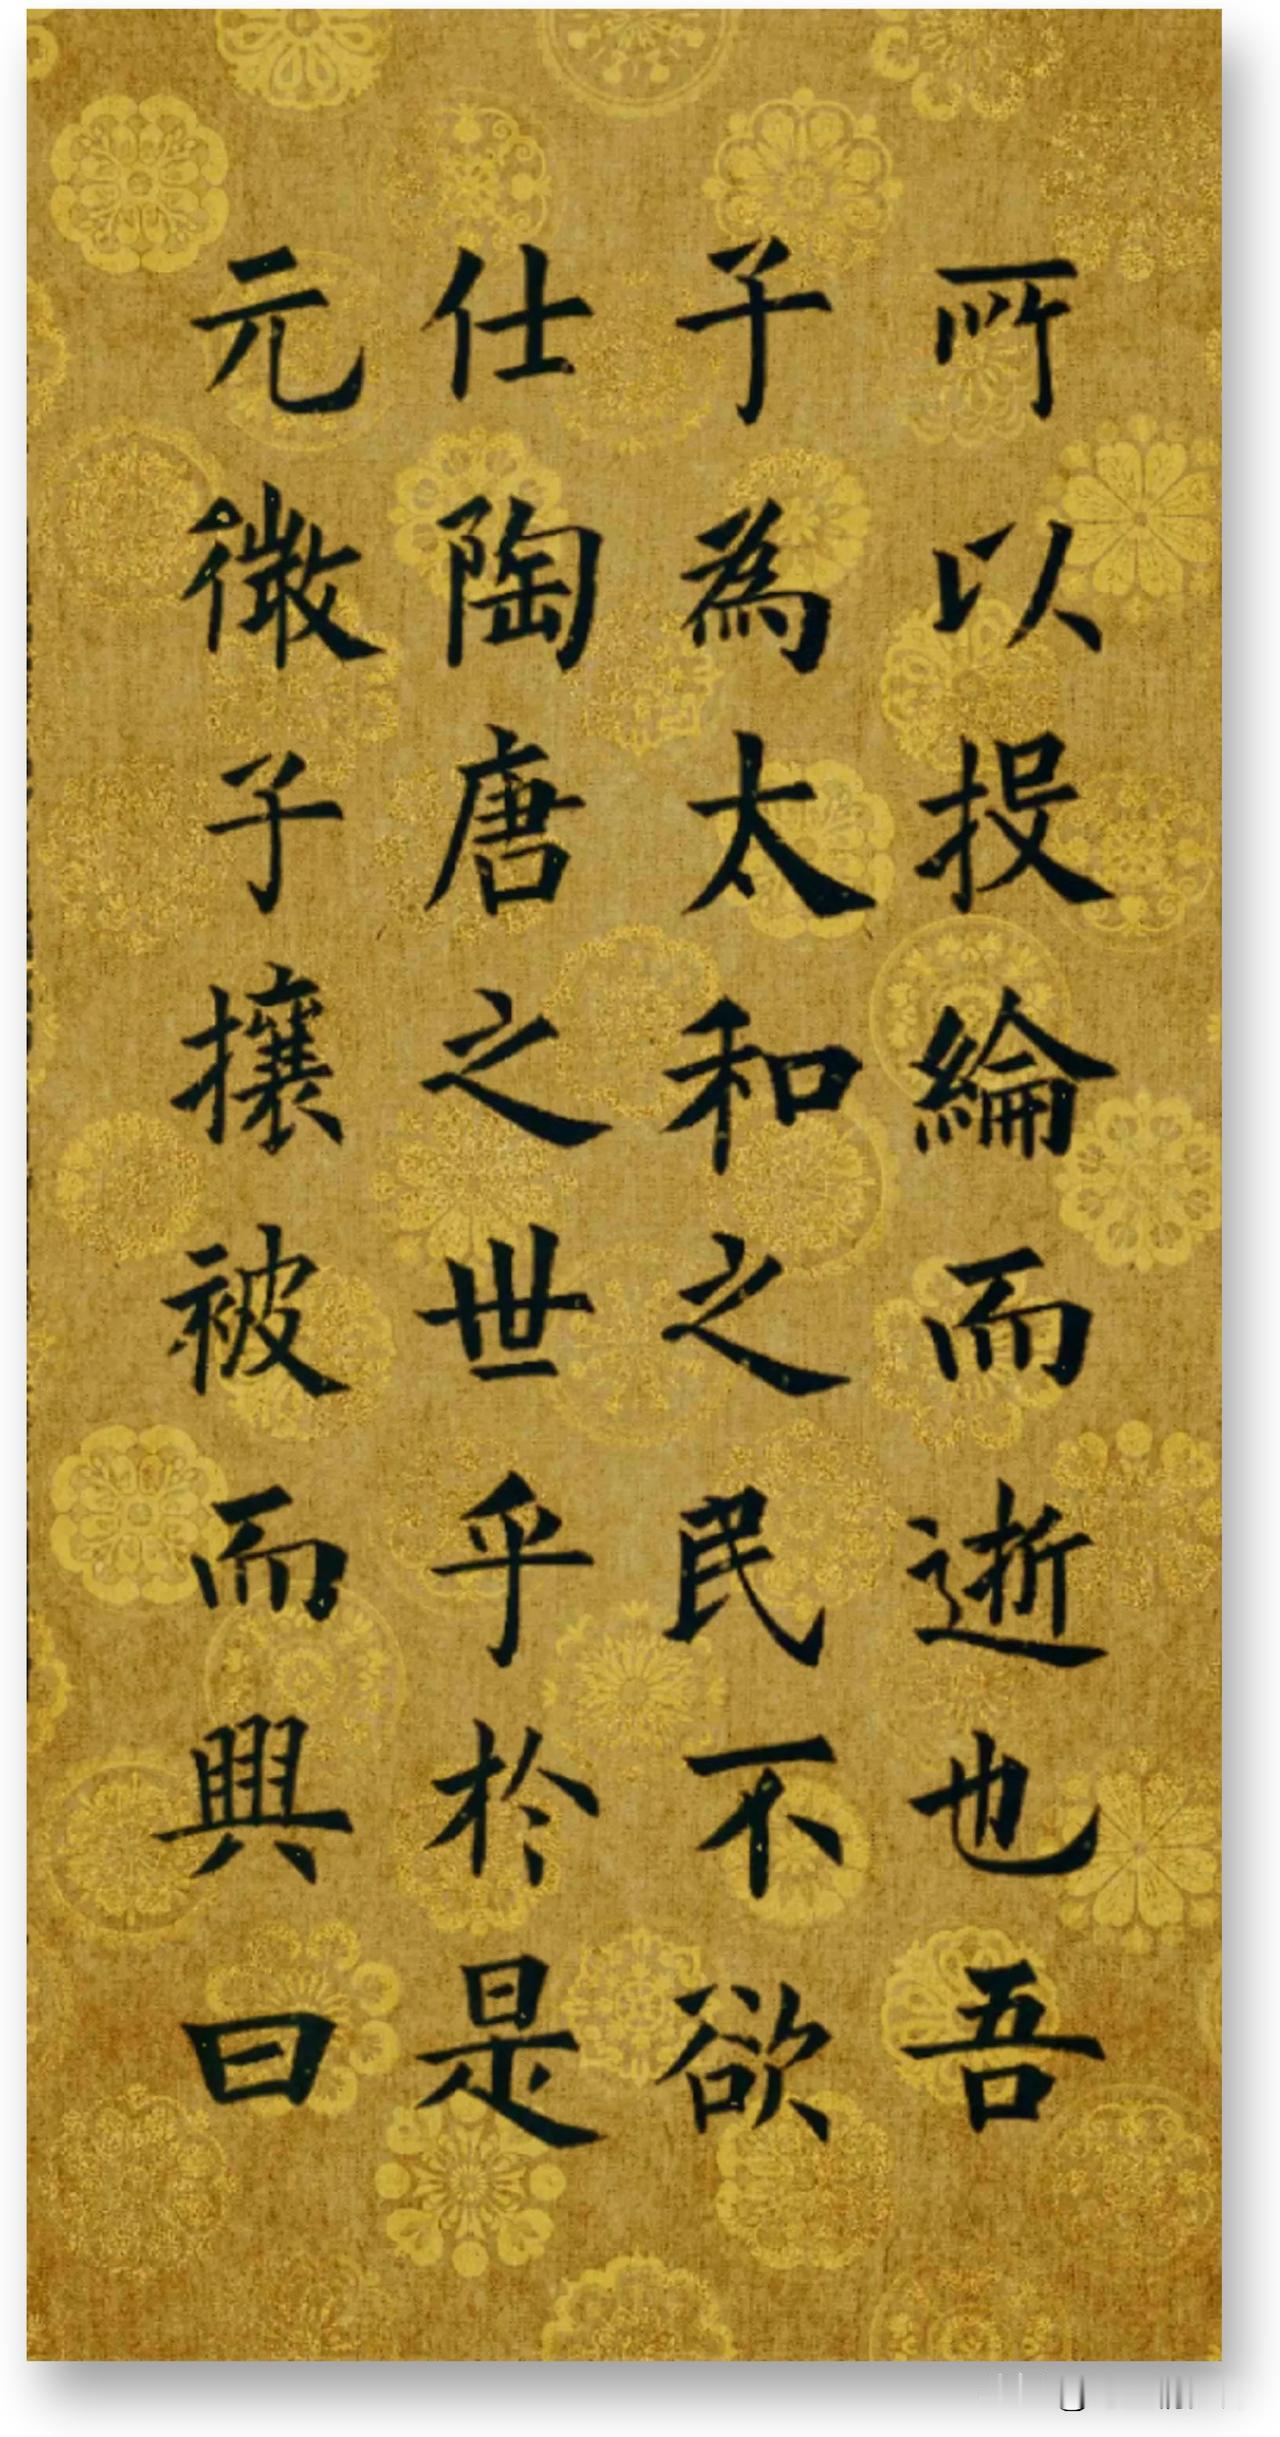 所以投綸而逝也吾
子為太和之民不欲
仕陶唐之世乎於是
元微子攘被而興曰